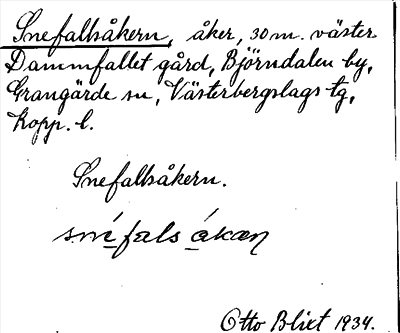 Snefallsåkern, åker, 30 m. väster
Dammfallet gård, Björndalen by,
Grangärde sn, Västerbergslags tg,
Kopp. l.
Snefallsåkern.
snéfals åkæn
Otto Blixt 1934.